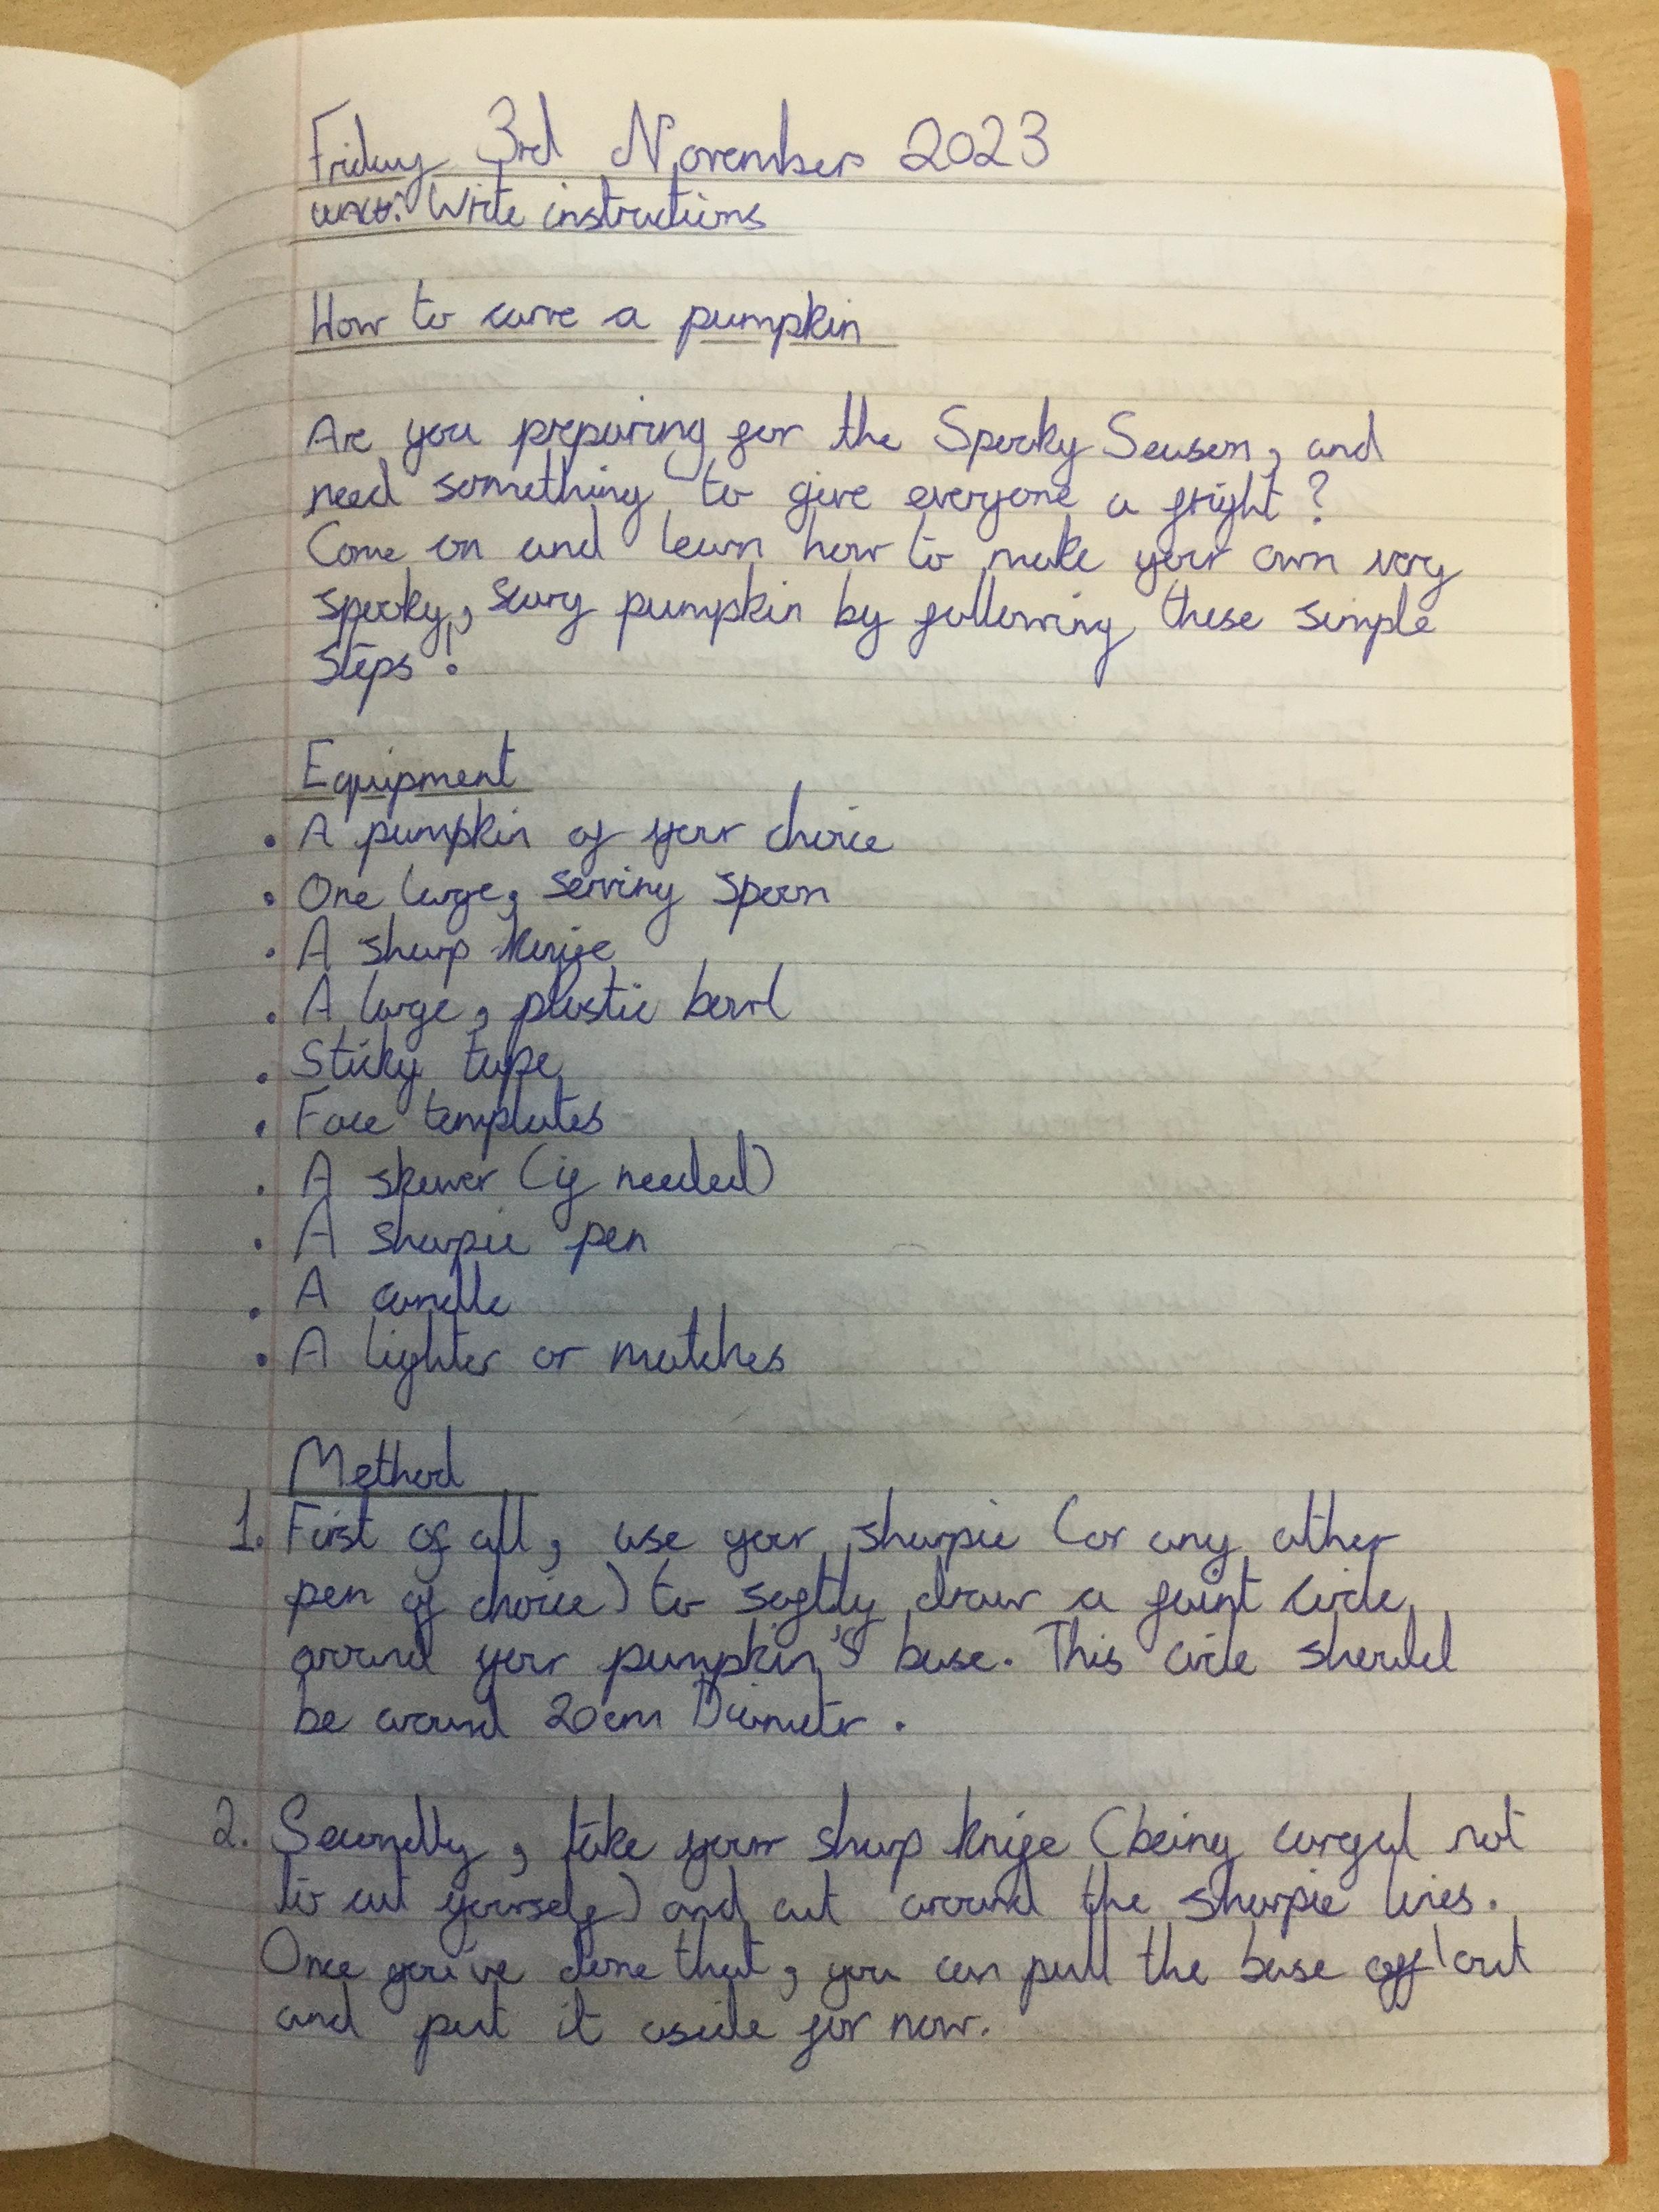 Friday 3rd November 2023
Write instructions
How to carve a pumpkin
Are you preparing for the Spooky Season, and
need something to give everyone a fright?
Come on and learn how to make your own very
spooky, scary pumpkin by following these simple
steps!
Equipment
• A pumpkin of your choice
• One large, serving spoon
• A sharp knife
• A large, plastic bowl
• Sticky tape
• Face templates
• A skewer (if needed)
• A sharpie pen
• A candle
• A lighter or matches
Method
1. First of all, use your sharpie (or any other
pen of choice) to softly draw a faint circle
around your pumpkin's base. This circle should
be around 20cm Diameter.
2. Secondly, take your sharp knife (being careful not
to cut yourself) and cut around the sharpie lines.
Once you've done that, you can pull the base off/out
and put it aside for now.